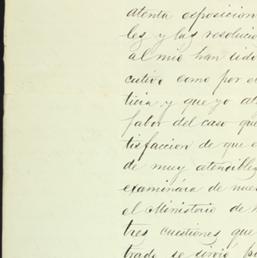 atenta esposicion
les y las resolucio
al mio han sido
cutivo como por e
ticia y que yo at
fabor del caso que
tisfaccion de que e
de muy atencibles
examinára de nue
el Ministerio de
tres cuestiones que
trado se sirvió